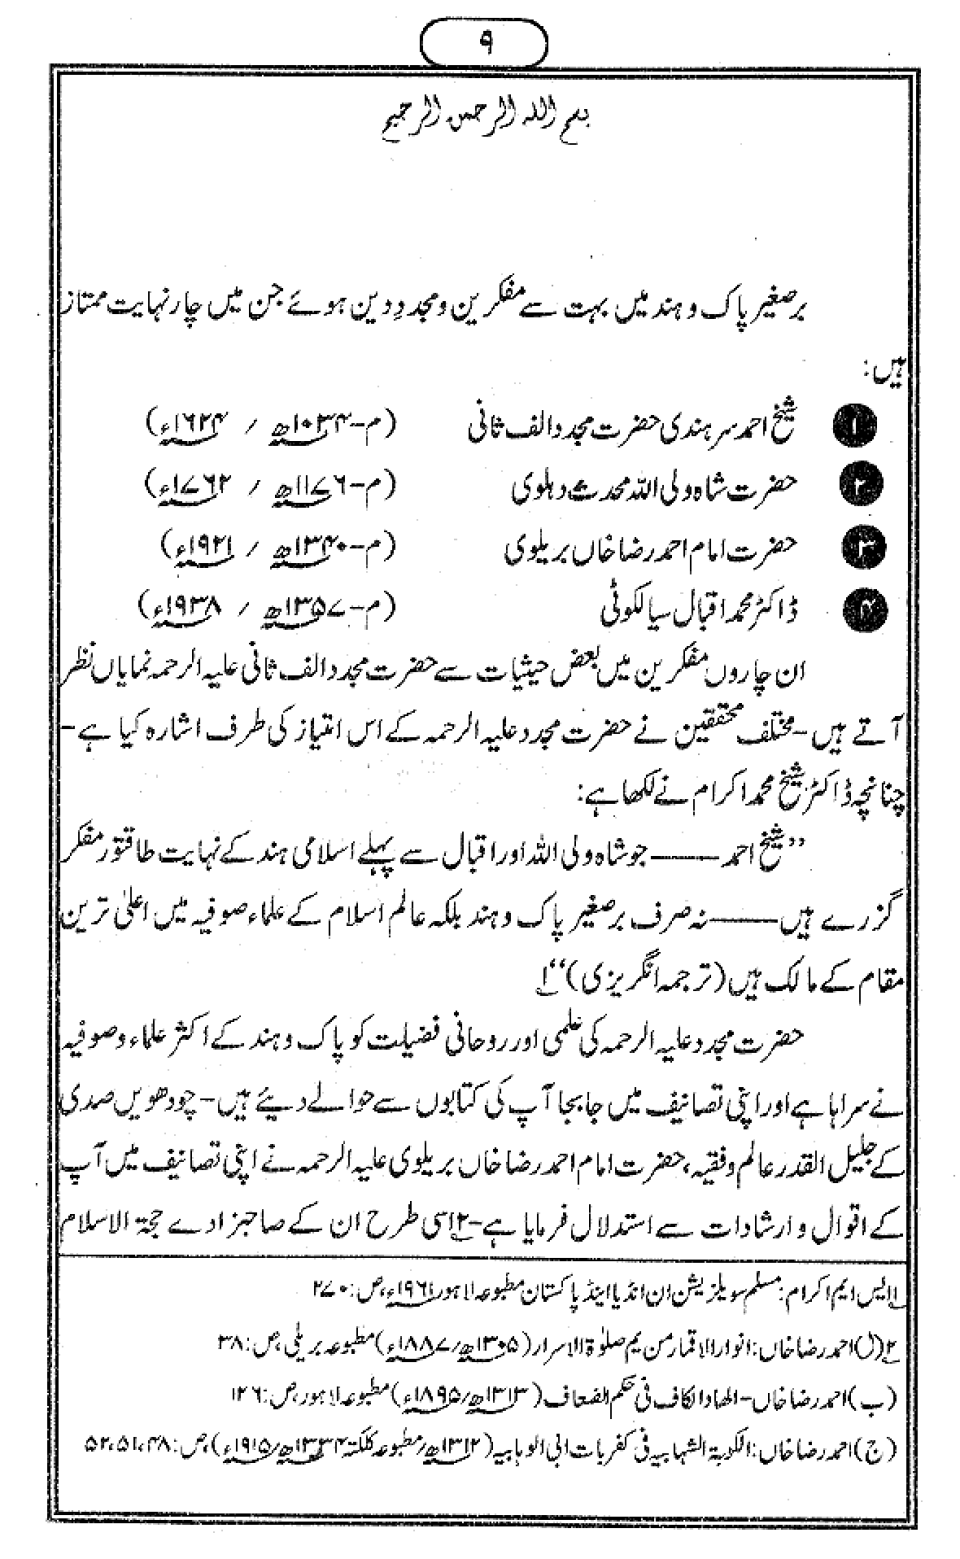 ۹
بسم اللہ الرحمن الرحیم
برصغیر پاک و ہند میں بہت سے مفکرین و مجددِ دین ہوئے جن میں چار نہایت ممتاز
ہیں:
۱ شیخ احمد سرہندی حضرت مجدد الف ثانی (م-۱۰۳۴ھ / ۱۶۲۴ء)
۲ حضرت شاہ ولی اللہ محدث دہلوی (م-۱۱۷۶ھ / ۱۷۶۲ء)
۳ حضرت امام احمد رضا خاں بریلوی (م-۱۳۴۰ھ / ۱۹۲۱ء)
۴ ڈاکٹر محمد اقبال سیالکوٹی (م-۱۳۵۷ھ / ۱۹۳۸ء)
ان چاروں مفکرین میں بعض حیثیات سے حضرت مجدد الف ثانی علیہ الرحمہ نمایاں نظر
آتے ہیں-مختلف محققین نے حضرت مجدد علیہ الرحمہ کے اس امتیاز کی طرف اشارہ کیا ہے-
چنانچہ ڈاکٹر شیخ محمد اکرام نے لکھا ہے:
”شیخ احمد —— جو شاہ ولی اللہ اور اقبال سے پہلے اسلامی ہند کے نہایت طاقتور مفکر
گزرے ہیں —— نہ صرف برصغیر پاک و ہند بلکہ عالم اسلام کے علماء صوفیہ میں اعلیٰ ترین
مقام کے مالک ہیں (ترجمہ انگریزی)“۱
حضرت مجدد علیہ الرحمہ کی علمی اور روحانی فضیلت کو پاک و ہند کے اکثر علماء و صوفیہ
نے سراہا ہے اور اپنی تصانیف میں جا بجا آپ کی کتابوں سے حوالے دیئے ہیں-چودھویں صدی
کے جلیل القدر عالم و فقیہ، حضرت امام احمد رضا خاں بریلوی علیہ الرحمہ نے اپنی تصانیف میں آپ
کے اقوال و ارشادات سے استدلال فرمایا ہے-۲ اسی طرح ان کے صاحبزادے حجۃ الاسلام
۱ ایس ایم اکرام: مسلم سویلزیشن ان انڈیا اینڈ پاکستان مطبوعہ لاہور ۱۹۶۱ء، ص: ۲۷۰
۲ (ا) احمد رضا خاں: انوار الاقمار من یم صلوٰۃ الاسرار (۱۳۰۵ھ/۱۸۸۷ء) مطبوعہ بریلی، ص: ۳۸
(ب) احمد رضا خاں-الھاد الکاف فی حکم الضعاف (۱۳۱۳ھ/۱۸۹۵ء) مطبوعہ لاہور، ص: ۱۲۶
(ج) احمد رضا خاں: الکوبۃ الشہابیہ فی کفریات ابی الوہابیہ (۱۳۱۲ھ/مطبوعہ کلکتہ ۱۳۳۴ھ/۱۹۱۵ء)، ص: ۴۸، ۵۱، ۵۲